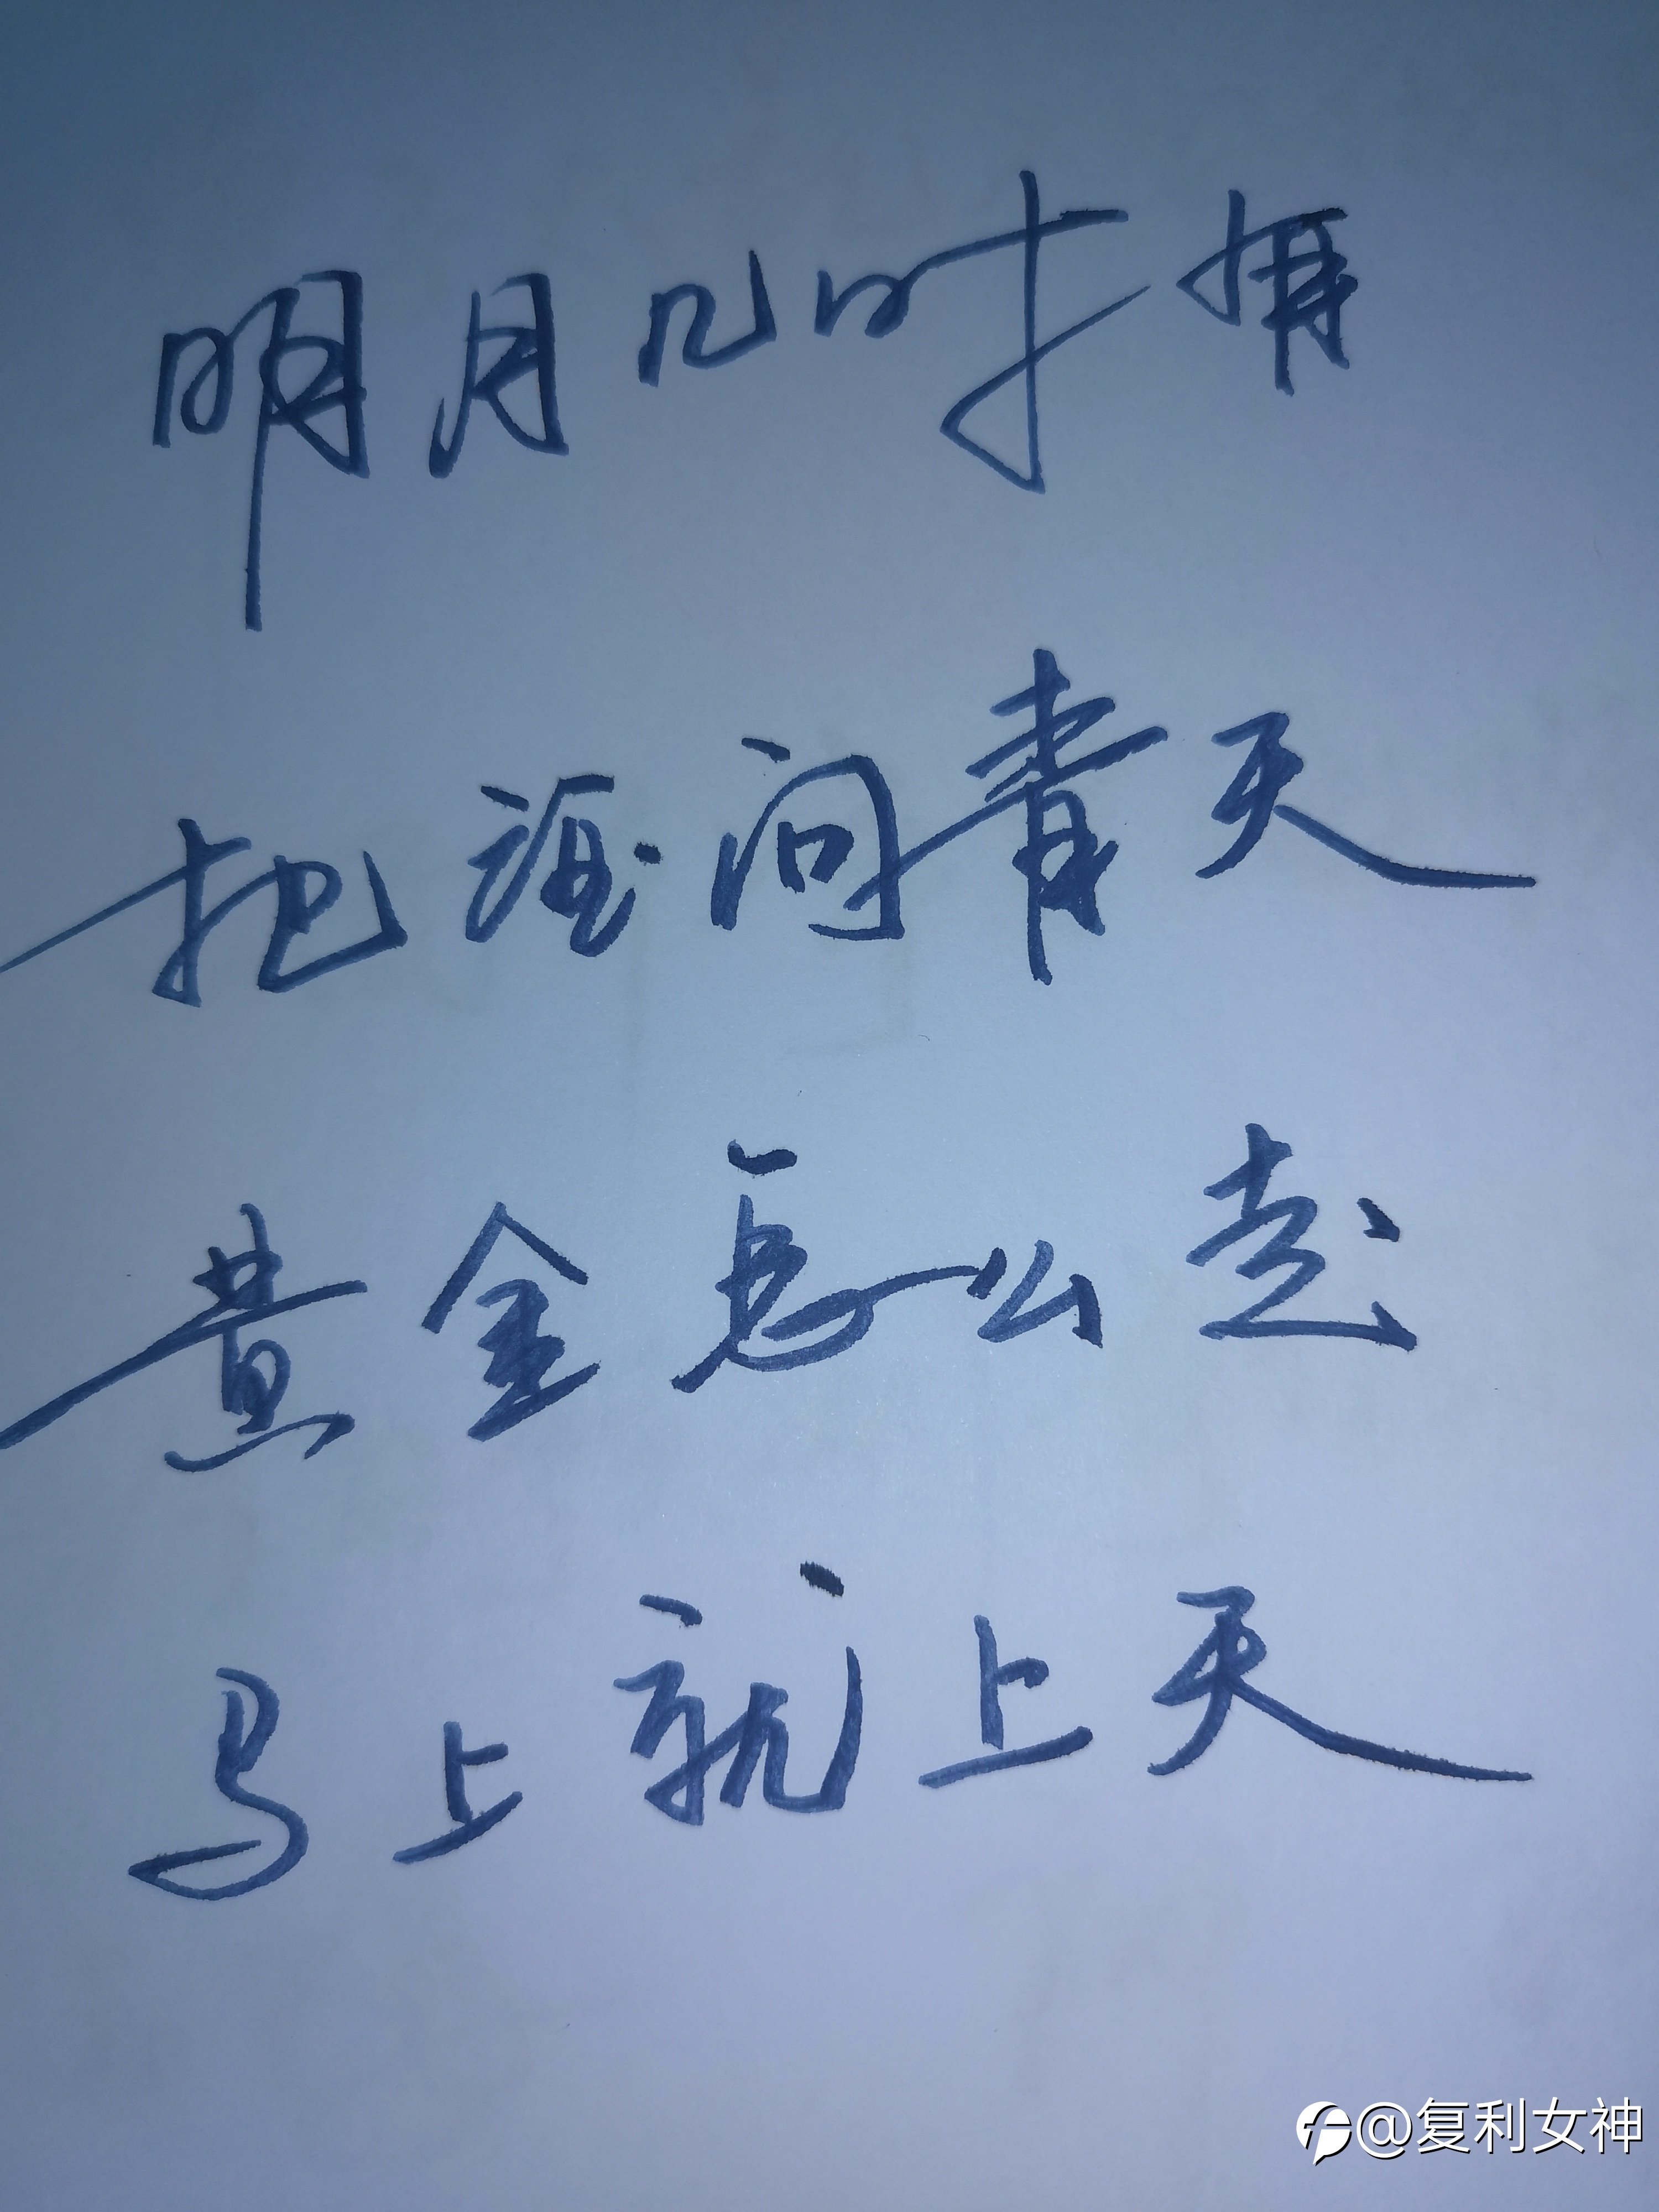 明月几时
把酒问青天
黄金怎么走
马上就上天
@复利女神